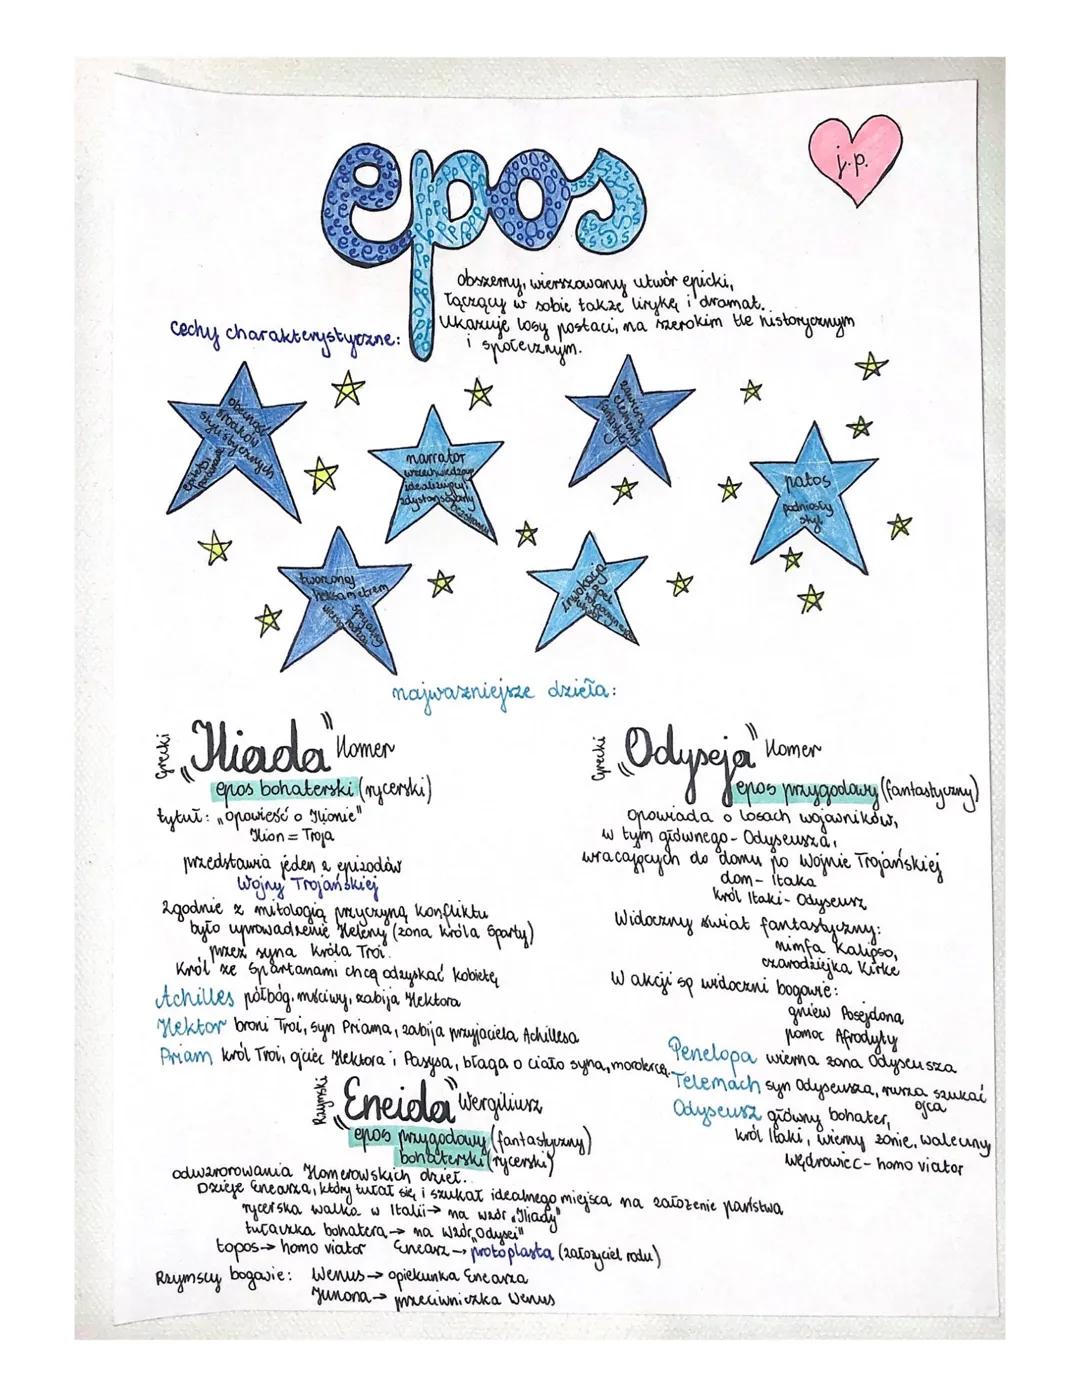 epos
j.p.
obszerny, wierszowany utwór epicki,
łączący w sobie także lirykę i dramat.
Ukazuje losy postaci, na szerokim tle historycznym
i społecznym.
cechy charakterystyczne:
obecność
środków
stylistycznych
epitety,
porównania
narrator
wszechwiedzący
idealizujący
zdystansowany
bezstronny
zawiera
elementy
fantastyki
patos
podniosły
styl
tworzony
heksametrem
specjalny
wiersz
inwokacja
apel
rozpoczynający
utwór
najważniejsze dzieła:
Grecki
„Iliada" Homer
epos bohaterski (rycerski)
tytuł: „opowieść o Ilionie"
Ilion = Troja
przedstawia jeden z epizodów
Wojny Trojańskiej
zgodnie z mitologią przyczyną konfliktu
było uprowadzenie Heleny (żona króla Sparty)
przez syna króla Troi.
Król ze Spartanami chcą odzyskać kobietę
Achilles półbóg, mściwy, zabija Hektora
Hektor broni Troi, syn Priama, zabija przyjaciela Achillesa
Priam król Troi, ojciec Hektora i Parysa, błaga o ciało syna, mordercę.
Grecki
„Odyseja" Homer
epos przygodowy (fantastyczny)
opowiada o losach wojowników,
w tym głównego - Odyseusza,
wracających do domu po Wojnie Trojańskiej
dom - Itaka
król Itaki - Odyseusz
Widoczny świat fantastyczny:
nimfa Kalipso,
czarodziejka Kirke
W akcji są widoczni bogowie:
gniew Posejdona
pomoc Afrodyty
Penelopa wierna żona Odyseusza
Telemach syn Odyseusza, rusza szukać
ojca
Odyseusz główny bohater,
król Itaki, wierny żonie, waleczny
wędrowiec - homo viator
Rzymski
„Eneida" Wergiliusz
epos przygodowy (fantastyczny)
bohaterski (rycerski)
odwzorowania Homerowskich dzieł.
Dzieje Eneasza, który tułał się i szukał idealnego miejsca na założenie państwa
rycerska walka w Italii → na wzór „Iliady"
tułaczka bohatera → na wzór „Odysei"
topos → homo viator Eneasz → protoplasta (założyciel rodu)
Rzymscy bogowie: Wenus → opiekunka Eneasza
Junona → przeciwniczka Wenus